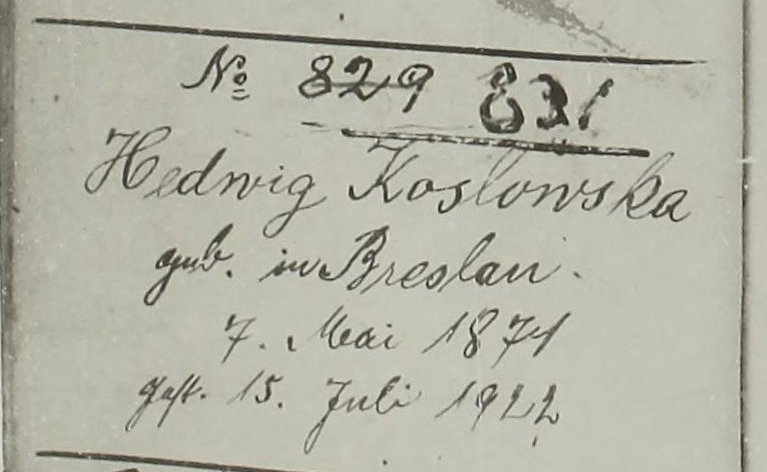 No 829 831
Hedwig Koslowska
geb. in Breslau.
7. Mai 1871
gest. 15. Juli 1922